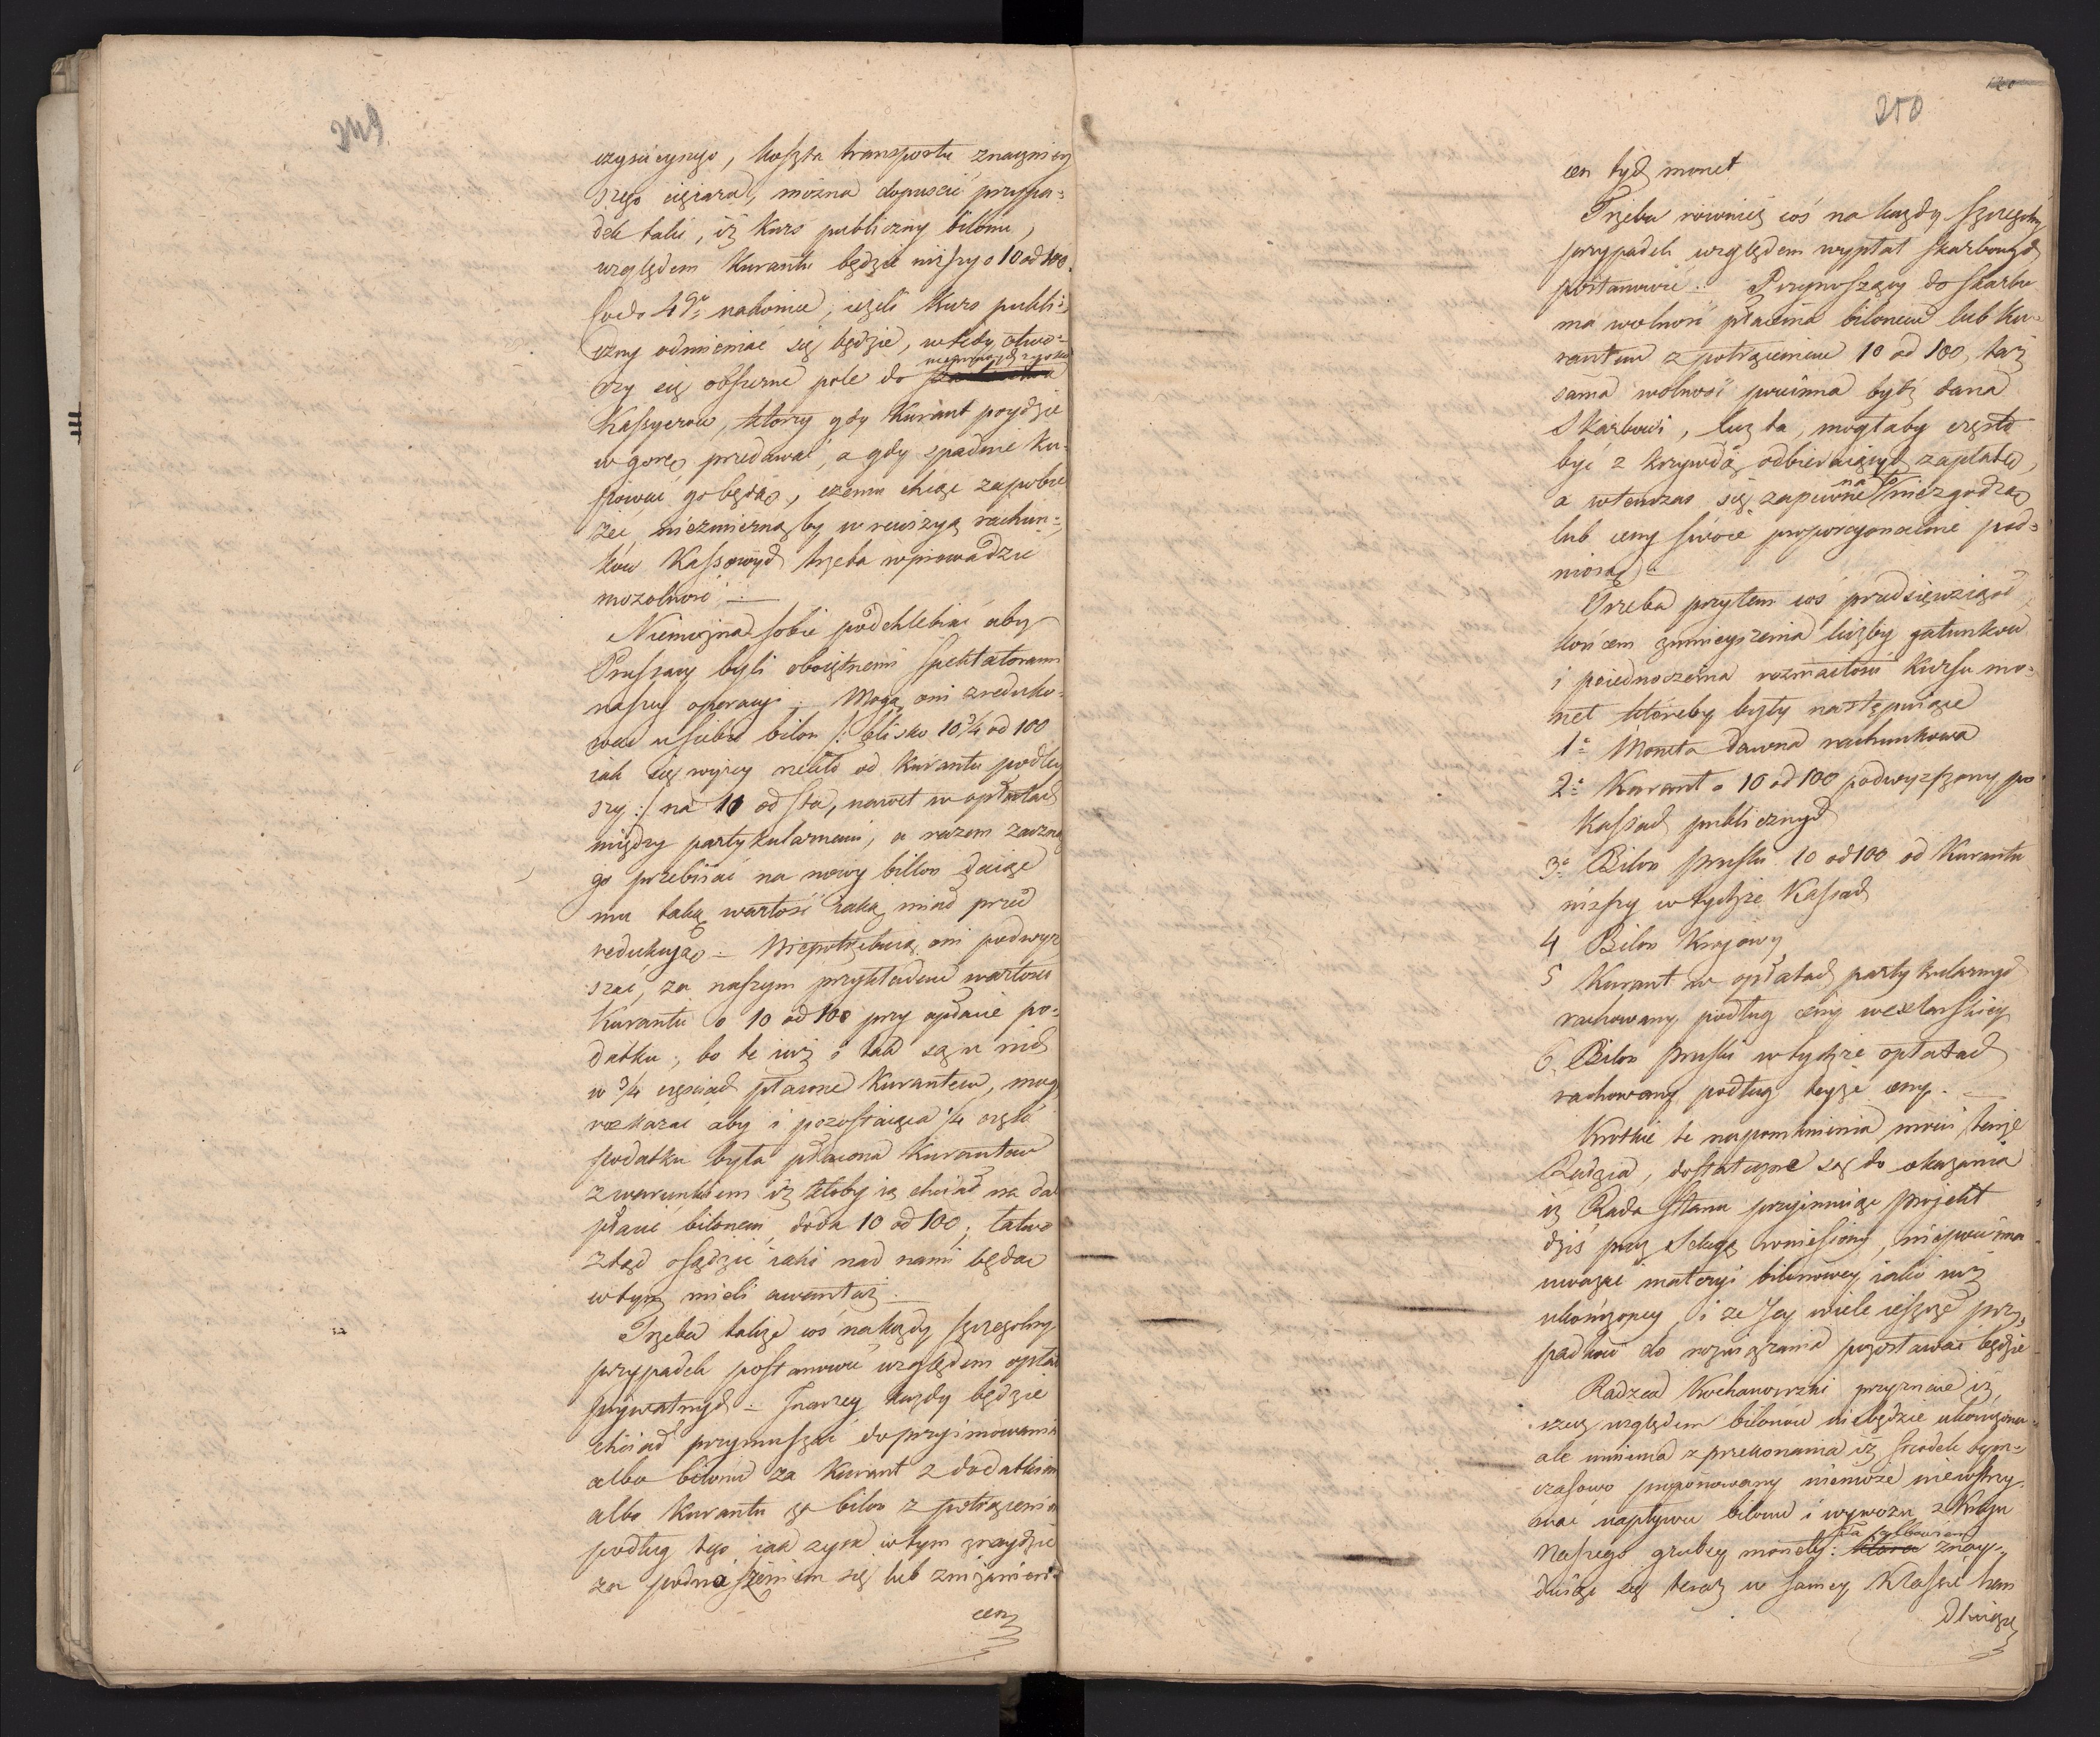 249
czyściejnego, koszta transportu znaczniey
szego ciężaru, można dopuścić przypa=
dek taki, iż kurs publiczny bilonu,
względem Kurantu będzie niższy o 10 od 100.
Co do 4go nakoniec, ieżeli Kurs publi=
czny odmieniać się będzie, wtedy otwo=
rzy się obszerne pole do
Kassyerów, którzy gdy Kurant poydzie
w gorę przedawać, a gdy spadnie ku=
pować go będą, czemu chcąc zapobie
żeć, niezmierną by w rewizyą rachun=
ków Kassowych trzeba wprowadzić
mozolność.—
Niemożna sobie podchlebiać aby
Prussacy byli oboiętnemi spektatorami
naszey operacyi. Mogą oni zreduko=
wać u siebie bilon /: blisko 10 3/4 od 100
iak się wyżey rzekło od Kurantu podley
szy :/ na 10 od sta, nawet w opłatach
między partykularnemi, a razem zacząć
go przebiiać na nowy billon daiąc
mu taką wartość iaką miał przed
redukcyą — Niepotrzebuią oni podwyż
szać, za naszym przykładem wartości
Kurantu o 10 od 100 przy opłacie po=
datku, bo te iuż i tak są u nich
w 3/4 częściach płacone Kurantem, mogą
rozkazać aby i pozostaiąca 1/4 część
podatku była płacona Kurantem
z warunkiem iż ktoby ią chciał na dal
płacić bilonem, doda 10 od 100; łatwo
ztąd osądzić iaki nad nami będą
w tym mieli awantaż.—
Trzeba także coś na każdy szczegolny
przypadek postanowić względem opłat
prywatnych — Inaczey każdy będzie
chciał przymuszać do przyimowania
albo bilonu za Kurant z dodatkiem
albo Kurantu za bilon z potrąceniem
podług tego iak zysk w tym znaydzie
za podnoszeniem się lub zniżeniem
cen
250
cen tych monet
Trzeba również coś na każdy szczegolny
przypadek względem wypłat skarbowych
postanowić. Przynoszący do skarbu
ma wolność płacenia bilonem lub Ku=
rantem z potrąceniem 10 od 100, taż
sama wolność powinna bydź dana
Skarbowi, lecz ta, mogłaby często
być z krzywdą odbieraiących zapłatę,
na to
a wtenczas się zapewne niezgodzą
lub ceny swoie proporcyonalnie pod=
niosą.—
Trzeba przytem coś przedsięwziąć
końcem zmnieyszenia liczby gatunków
i poiednoczenia rozmaitości kursu mo=
net któreby były następuiące
1° Moneta dawna rachunkowa
2° Kurant o 10 od 100 podwyższony po
Kassach publicznych
3° Bilon pruski 10 od 100 od Kurantu
niższy w tychże Kassach
4 Bilon Krajowy
5 Kurant w opłatach partykularnych
rachowany podług ceny wexlarskiey
6. Bilon pruski w tychże opłatach
rachowany podług teyże ceny.—
Krótkie te napomknienia mówi tenże
Radzca, dostateczne są do okazania
iż Rada Stanu przyimuiąc projekt
dziś przez Sekcyą wniesiony, niepowinna
uważać materyi bilonowey iako iuż
ukończoney, i że Jey wiele ieszcze przy=
padków do rozwiązania pozostawać będzie
Radzca Kochanowski przyznaie iż
rzecz względem bilonów niebędzie ukończona
ale mniema z przekonania iż środek tym=
czasowo proponowany niemoże niewstrzy=
mać napływu bilonu i wywozu z Kraju
Ta albowiem
naszego grubey monety: która znay=
duiąc się teraz w samey Klassie han
dluiącey